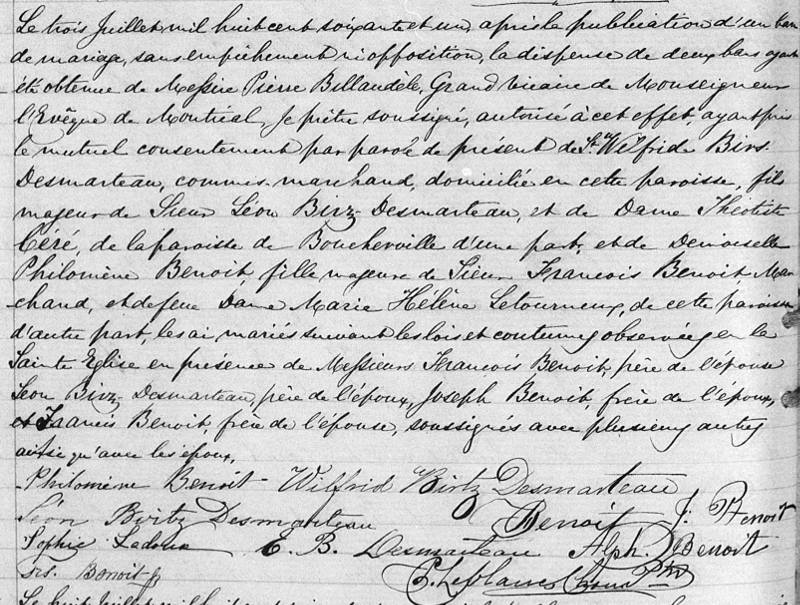 Le trois Juillet mil huit cent soixante et un, après la publication d'un ban
de mariage, sans empêchement ni opposition, la dispense de deux bans ayant
été obtenue de Messire Pierre Billaudèle, Grand Vicaire de Monseigneur
l'Evêque de Montréal, Je prêtre soussigné, autorisé à cet effet, ayant pris
le mutuel consentement par parole de présent de Sr. Wilfride Birs
Desmarteau, commis-marchand, domicilié en cette paroisse, fils
majeur de Sieur Léon Birz-Desmarteau, et de Dame Théotiste
Céré, de la paroisse de Boucherville d'une part, et de Demoiselle
Philomène Benoit, fille majeure de Sieur Francois Benoit Mar
chand, et de feue Dame Marie Hélène Letourneux, de cette paroisse
d'autre part, les ai mariés suivant les lois et coutumes observées en la
Sainte Eglise en présence de Messieurs Francois Benoit, père de l'épouse
Leon Birz-Desmarteau, père de l'époux, Joseph Benoit, frère de l'époux,
et Francis Benoit, frère de l'épouse, soussignés avec plusieurs autres
ainsi qu'avec les époux.
Philomène Benoit - Wilfrid Birtz Desmarteau
Léon Birtz Desmarteau Benoit J. Benoit
Sophie Ladoux E. B. Desmarteau Alph. Benoit
Frs. Benoit jr Leblanc Ptre
Le huit Juillet mil huit cent